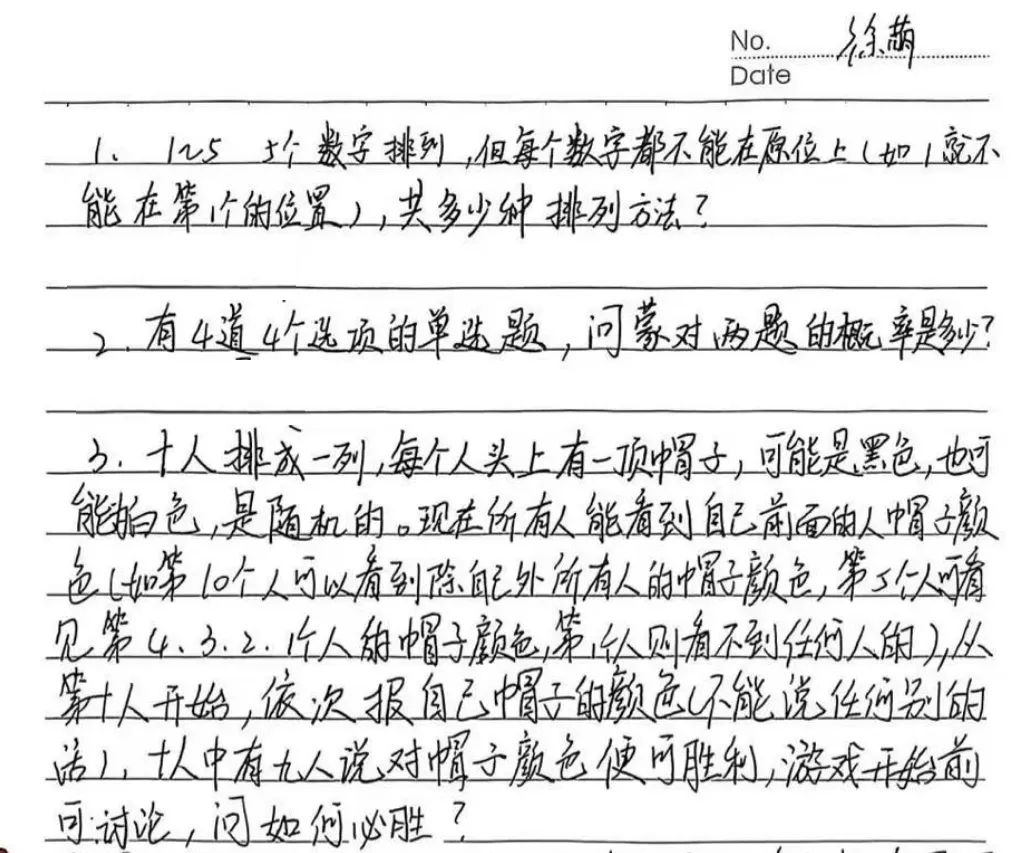 No. 徐萌
Date
1. 1~5 5个数字排列,但每个数字都不能在原位上(如1就不
能在第1个的位置),共多少种排列方法?
2. 有4道4个选项的单选题,问蒙对两题的概率是多少?
3. 十人排成一列,每个人头上有一顶帽子,可能是黑色,也可
能是白色,是随机的。现在所有人能看到自己前面的人帽子颜
色(如第10个人可以看到除自己外所有人的帽子颜色,第5个人可看
见第4.3.2.1个人的帽子颜色,第1个人则看不到任何人的),从
第十人开始,依次报自己帽子的颜色(不能说任何别的
话),十人中有九人说对帽子颜色便可胜利,游戏开始前
可讨论,问如何必胜?